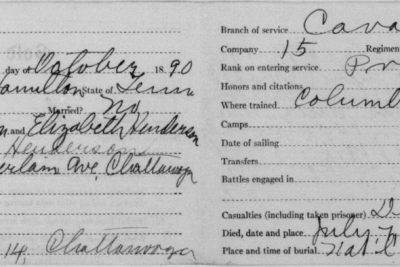 day of October 1890
Hamilton State of Tenn
Married? No
and Elizabeth Henderson
Henderson
Ave, Chattanooga
14, Chattanooga
Branch of service Cava
Company 15 Regimen
Rank on entering service Prv
Honors and citations
Where trained Columb
Camps
Date of sailing
Transfers
Battles engaged in
Casualties (including taken prisoner)
Died, date and place July
Place and time of burial Nat'l